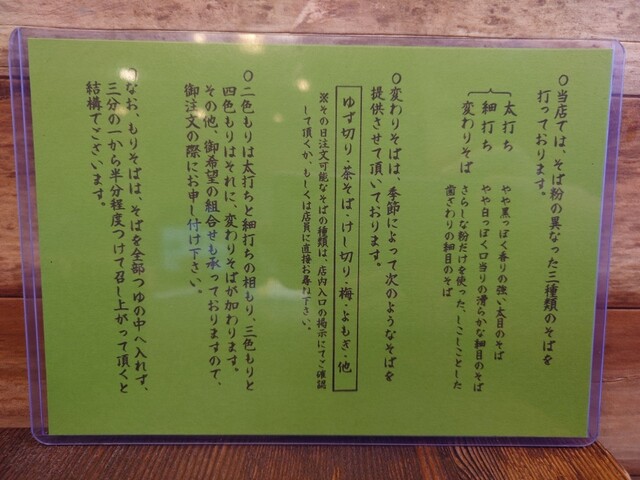 ○当店では、そば粉の異なった三種類のそばを
打っております。
太打ち やや黒っぽく香りの強い太目のそば
細打ち やや白っぽく口当りの滑らかな細目のそば
変わりそば さらしな粉だけを使った、しこしことした
歯ざわりの細目のそば
○変わりそばは、季節によって次のようなそばを
提供させて頂いております。
ゆず切り・茶そば・けし切り・梅・よもぎ・他
※その日注文可能なそばの種類は、店内入口の掲示にてご確認
して頂くか、もしくは店員に直接お尋ね下さい。
○二色もりは太打ちと細打ちの相もり、三色もりと
四色もりはそれに、変わりそばが加わります。
その他、御希望の組合せも承っておりますので、
御注文の際にお申し付け下さい。
○なお、もりそばは、そばを全部つゆの中へ入れず、
三分の一から半分程度つけて召し上がって頂くと
結構でございます。